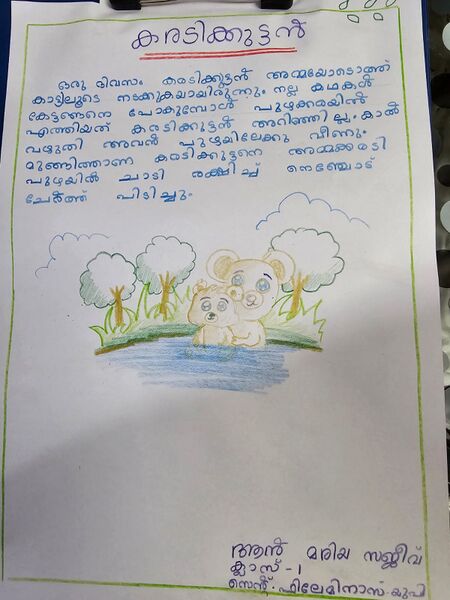 കരടിക്കുട്ടൻ
ഒരു ദിവസം കരടിക്കുട്ടൻ അമ്മയോടൊത്ത്
കാട്ടിലൂടെ നടക്കുകയായിരുന്നു. നല്ല കഥകൾ
കേട്ടങ്ങനെ പോകുമ്പോൾ പുഴക്കരയിൽ
എത്തിയത് കരടിക്കുട്ടൻ അറിഞ്ഞില്ല. കാൽ
വഴുതി അവൻ പുഴയിലേക്കു വീണു.
മുങ്ങിത്താണ കരടിക്കുട്ടനെ അമ്മക്കരടി
പുഴയിൽ ചാടി രക്ഷിച്ച് നെഞ്ചോട്
ചേർത്ത് പിടിച്ചു.
ആൻ മരിയ സജീവ്
ക്ലാസ് - 1
സെന്റ്. ഫിലോമിനാസ് യുപി